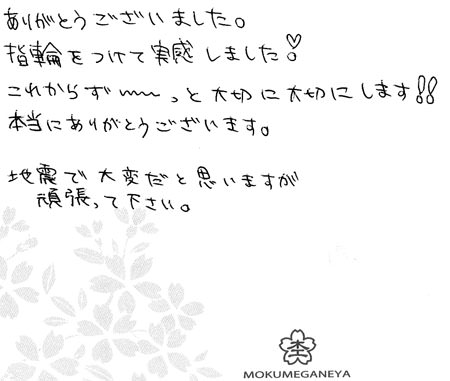 ありがとうございました。
指輪をつけて実感しました♡!
これからず〰っと大切に大切にします!!
本当にありがとうございます。
地震で大変だと思いますが
頑張って下さい。
MOKUMEGANEYA